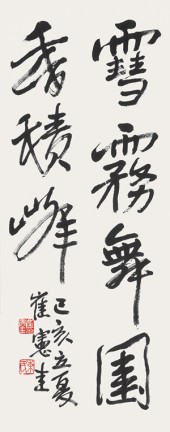 雪霧舞圍
香積峰
己亥立夏
崔憲圭